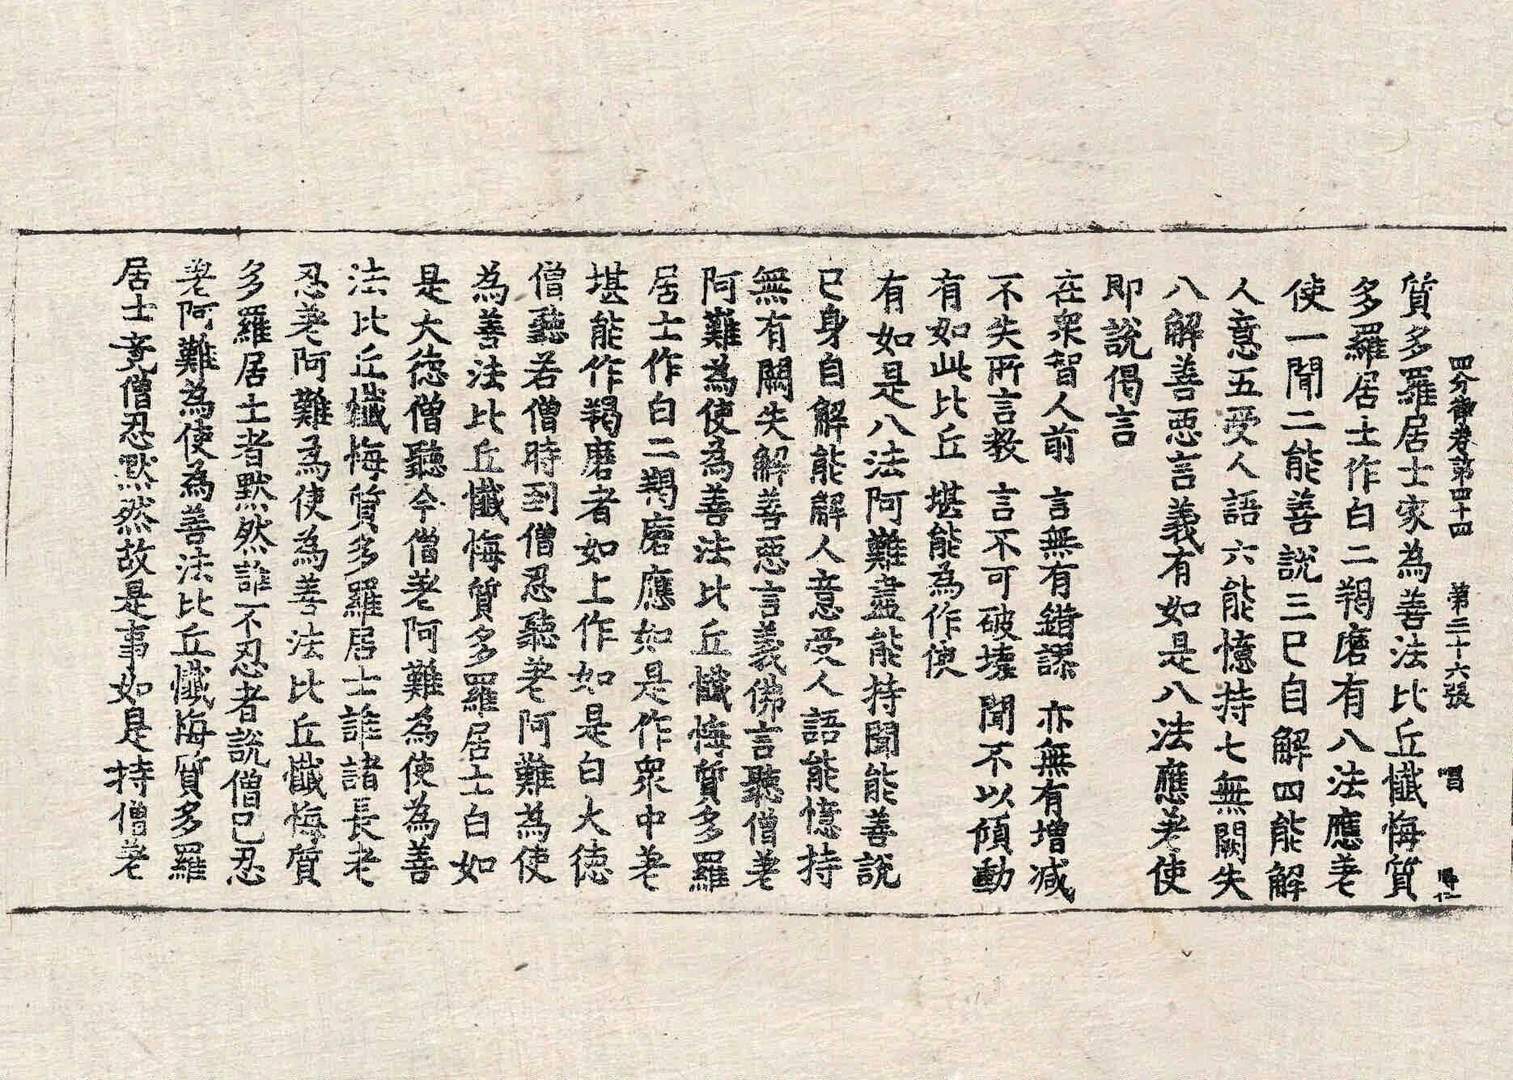 四分律卷第四十四　第二十六張　唱
質多羅居士家為善法比丘懺悔質
多羅居士作白二羯磨有八法應差
使一聞二能善說三已自解四能解
人意五受人語六能憶持七無闕失
八解善惡言義有如是八法應差使
即說偈言
在眾智人前　言無有錯謬　亦無有增減
不失所言教　言不可破壞　聞不以傾動
有如此比丘　堪能為作使
有如是八法阿難盡能持聞能善說
已身自解能解人意受人語能憶持
無有闕失解善惡言義佛言聽僧差
阿難為使為善法比丘懺悔質多羅
居士作白二羯磨應如是作眾中差
堪能作羯磨者如上作如是白大德
僧聽若僧時到僧忍聽差阿難為使
為善法比丘懺悔質多羅居士白如
是大德僧聽今僧差阿難為使為善
法比丘懺悔質多羅居士誰諸長老
忍差阿難為使為善法比丘懺悔質
多羅居士者默然誰不忍者說僧已忍
差阿難為使為善法比丘懺悔質多羅
居士竟僧忍默然故是事如是持僧差